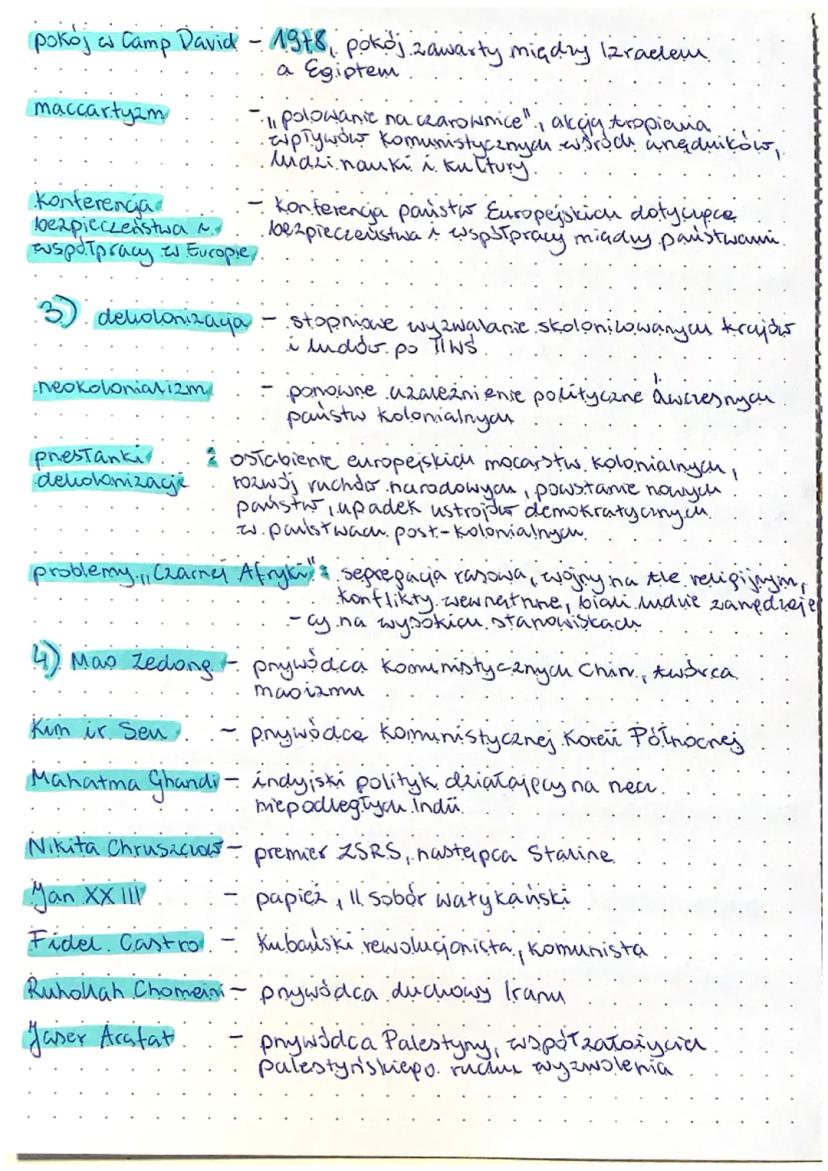 pokój w Camp David – 1978, pokój zawarty między Izraelem
a Egiptem
maccartyzm – „polowanie na czarownice", akcja tropienia
wpływów komunistycznych wśród urzędników,
ludzi nauki i kultury.
konferencja – konferencja państw Europejskich dotycząca
bezpieczeństwa i bezpieczeństwa i współpracy między państwami.
współpracy w Europie
3) dekolonizacja – stopniowe wyzwalanie skolonizowanych krajów
i ludów po II WŚ
neokolonializm – ponowne uzależnienie polityczne ówczesnych
państw kolonialnych
przesłanki : osłabienie europejskich mocarstw kolonialnych,
dekolonizacji rozwój ruchów narodowych, powstanie nowych
państw, upadek ustrojów demokratycznych
w państwach post-kolonialnych
problemy „Czarnej Afryki": segregacja rasowa, wojny na tle religijnym,
konflikty wewnętrzne, biali ludzie zarządzają
-cy na wysokich stanowiskach
4) Mao Zedong – przywódca komunistycznych Chin, twórca
maoizmu
Kim ir Sen – przywódca komunistycznej Korei Północnej
Mahatma Ghandi – indyjski polityk działający na rzecz
niepodległych Indii
Nikita Chruszczow – premier ZSRS, następca Stalina
Jan XXIII – papież, II sobór watykański
Fidel Castro – kubański rewolucjonista, komunista
Ruhollah Chomeini – przywódca duchowy Iranu
Jaser Arafat – przywódca Palestyny, współzałożyciel
palestyńskiego ruchu wyzwolenia